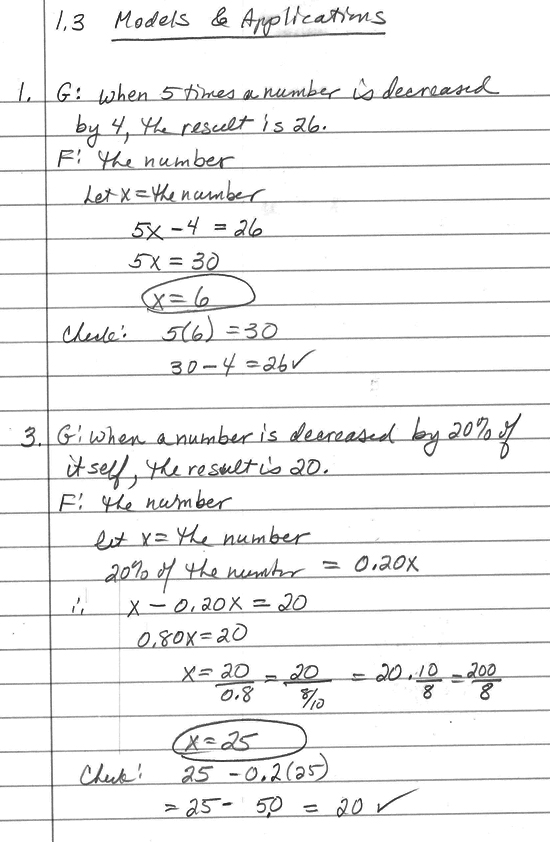 1.3 Models & Applications
1. G: When 5 times a number is decreased
by 4, the result is 26.
F: the number
Let x = the number
5x - 4 = 26
5x = 30
x = 6
Check: 5(6) = 30
30 - 4 = 26 ✓
3. G: When a number is decreased by 20% of
itself, the result is 20.
F: the number
let x = the number
20% of the number = 0.20x
∴ x - 0.20x = 20
0.80x = 20
x = 20/0.8 = 20/(8/10) = 20 · 10/8 = 200/8
x = 25
Check: 25 - 0.2(25)
= 25 - 5.0 = 20 ✓